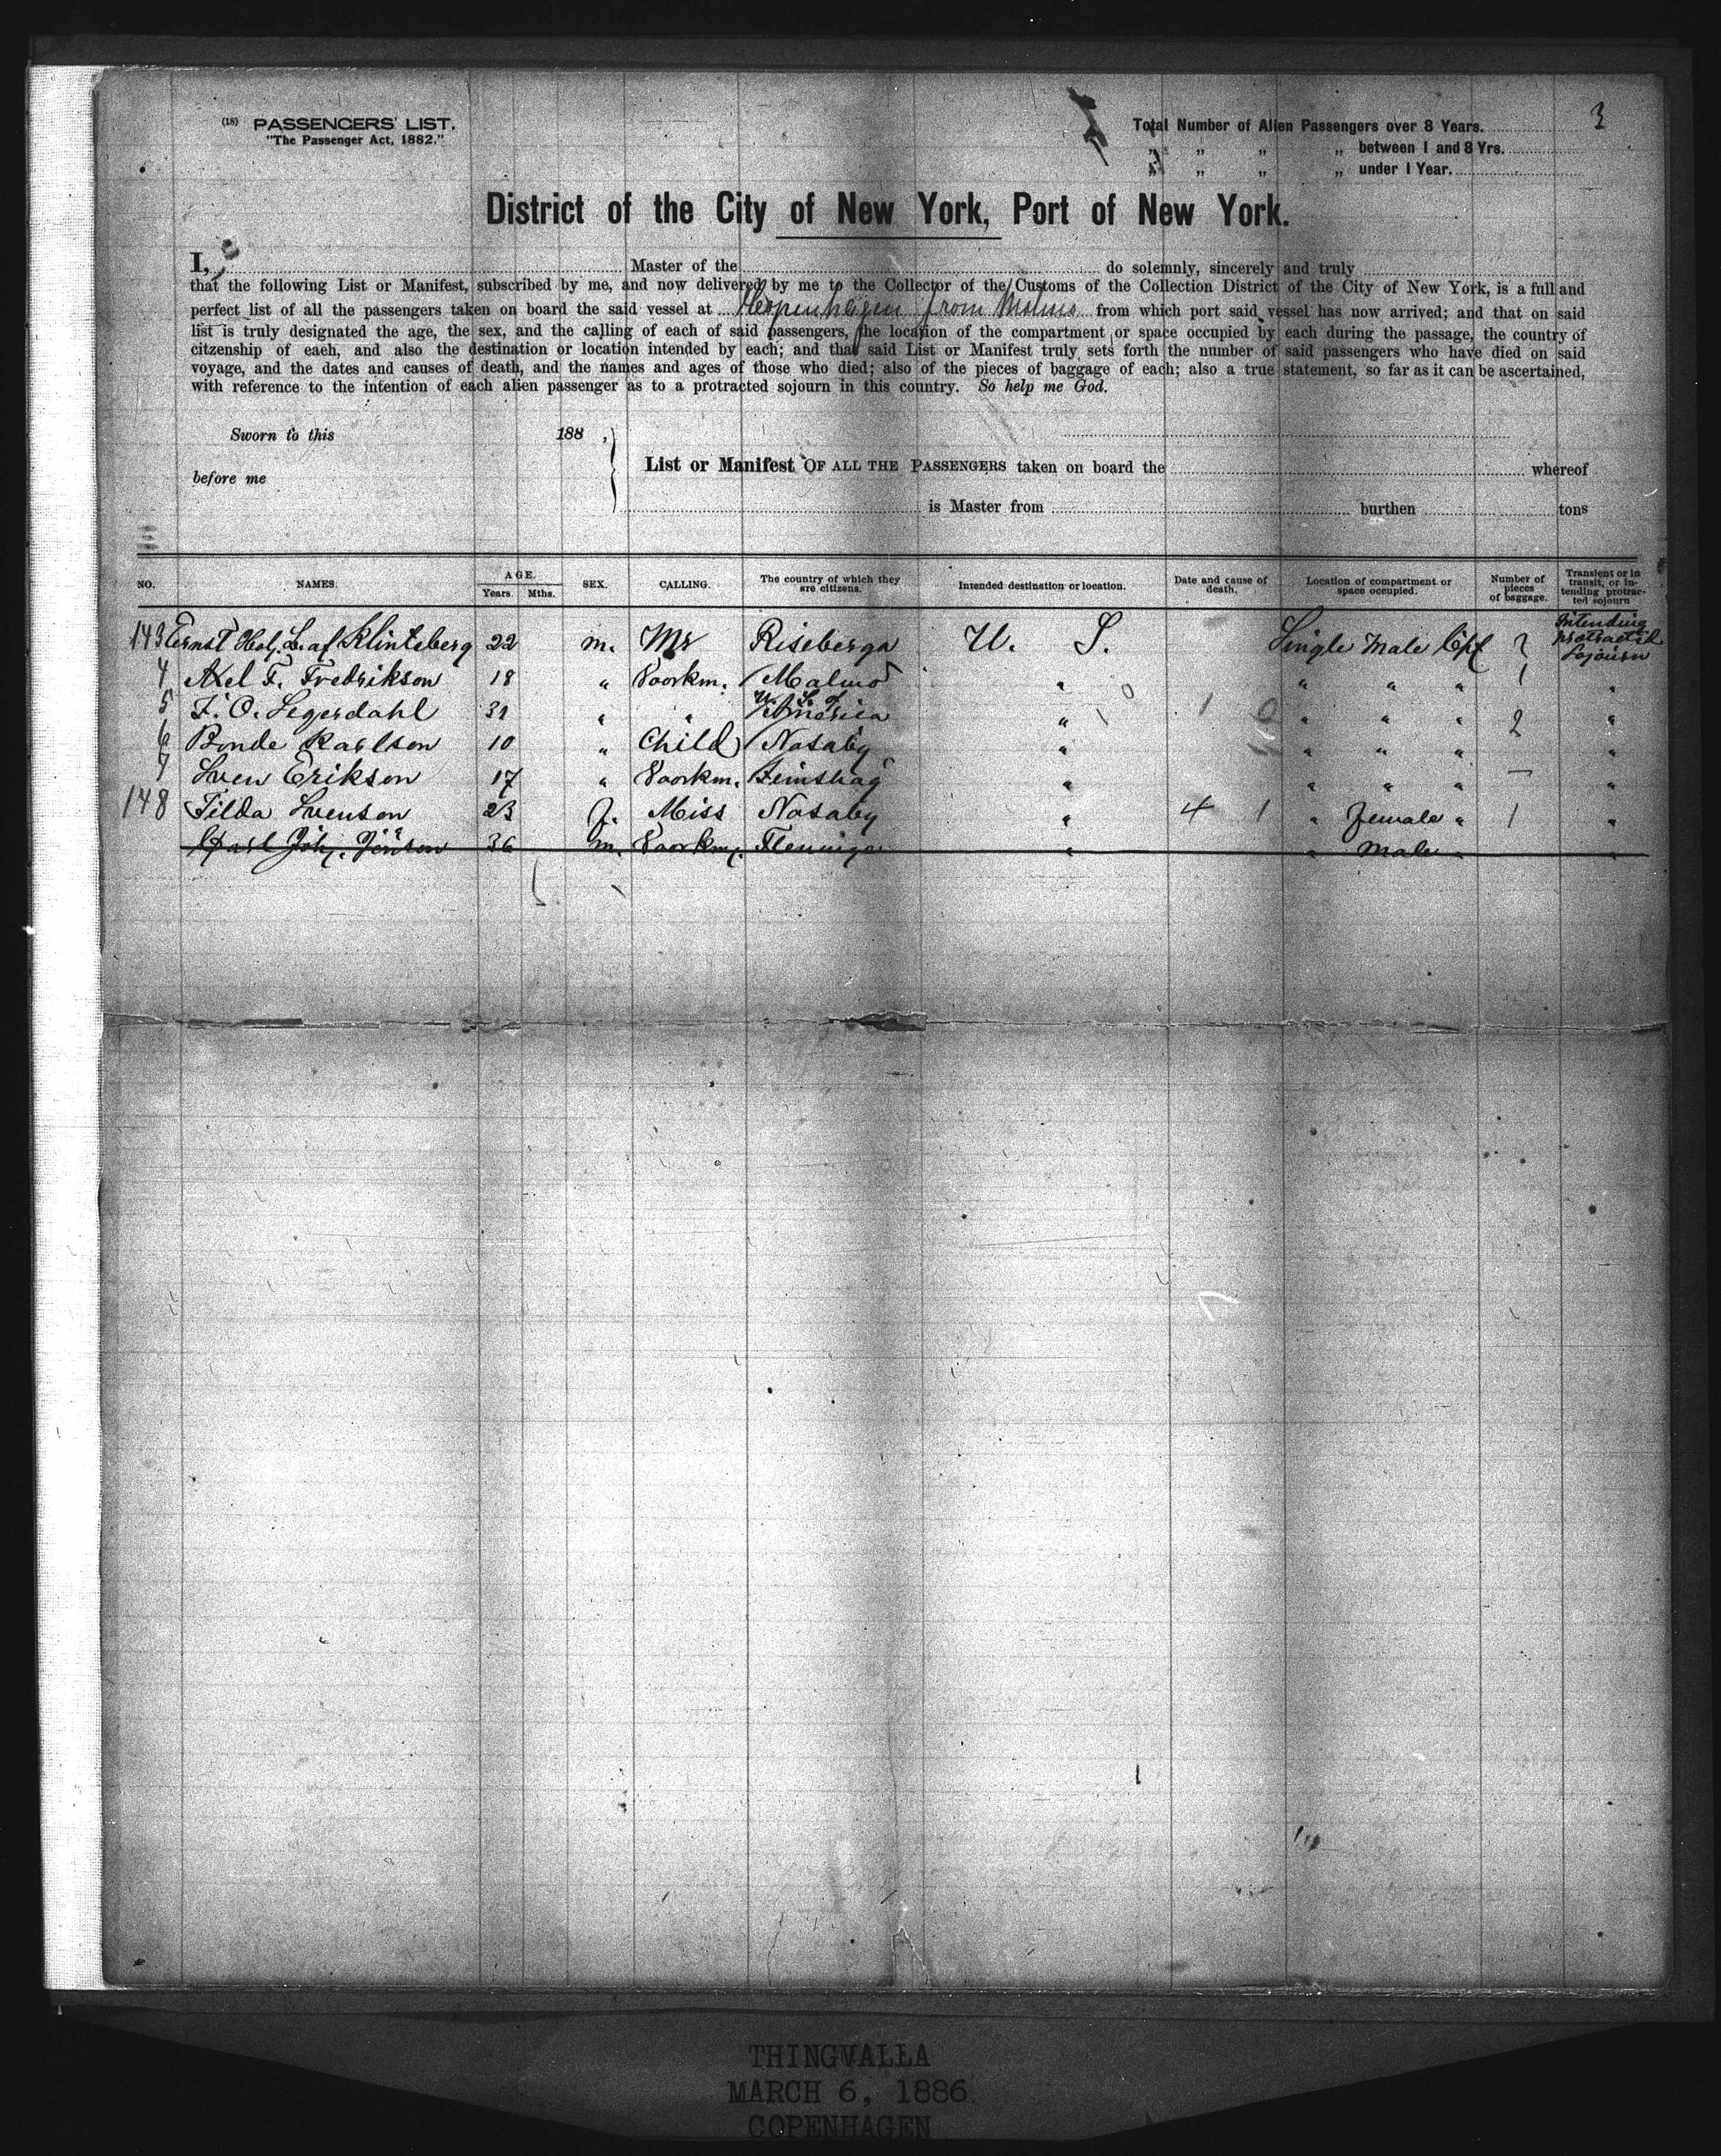 (18) PASSENGERS' LIST.
"The Passenger Act, 1882."
Total Number of Alien Passengers over 8 Years. 3
„ „ „ „ between 1 and 8 Yrs.
„ „ „ „ under 1 Year.
District of the City of New York, Port of New York.
I, Master of the do solemnly, sincerely and truly
that the following List or Manifest, subscribed by me, and now delivered by me to the Collector of the Customs of the Collection District of the City of New York, is a full and
perfect list of all the passengers taken on board the said vessel at Copenhagen from Malmö from which port said vessel has now arrived; and that on said
list is truly designated the age, the sex, and the calling of each of said passengers, the location of the compartment or space occupied by each during the passage, the country of
citzenship of eaeh, and also the destination or location intended by each; and that said List or Manifest truly sets forth the number of said passengers who have died on said
voyage, and the dates and causes of death, and the names and ages of those who died; also of the pieces of baggage of each; also a true statement, so far as it can be ascertained,
with reference to the intention of each alien passenger as to a protracted sojourn in this country. So help me God.
Sworn to this 188 ,
before me
List or Manifest OF ALL THE PASSENGERS taken on board the whereof
is Master from burthen tons
NO. NAMES. AGE. Years. Mths. SEX. CALLING. The country of which they are citizens. Intended destination or location. Date and cause of death. Location of compartment or space occupied. Number of pieces of baggage. Transient or in transit, or intending protracted sojourn
143 Ernst L. af Klinteberg 22 m. Mr Riseberga U. S. Single Male 2 Intending protracted Sojourn
4 Axel F. Fredrikson 18 " Voorkm. Malmö " " " " 1 "
5 F. O. Segerdahl 31 " " U. S. of America " " " " 2 "
6 Bonde Karlson 10 " Child Nosaby " " " " "
7 Sven Erikson 17 " Voorkm. " " " " — "
148 Tilda Svenson 23 f. Miss Nosaby " 4 1 " Female " 1 "
Carl Joh. Jönson 36 m. Voorkm. Fleninge " " Male " "
THINGVALLA
MARCH 6, 1886
COPENHAGEN